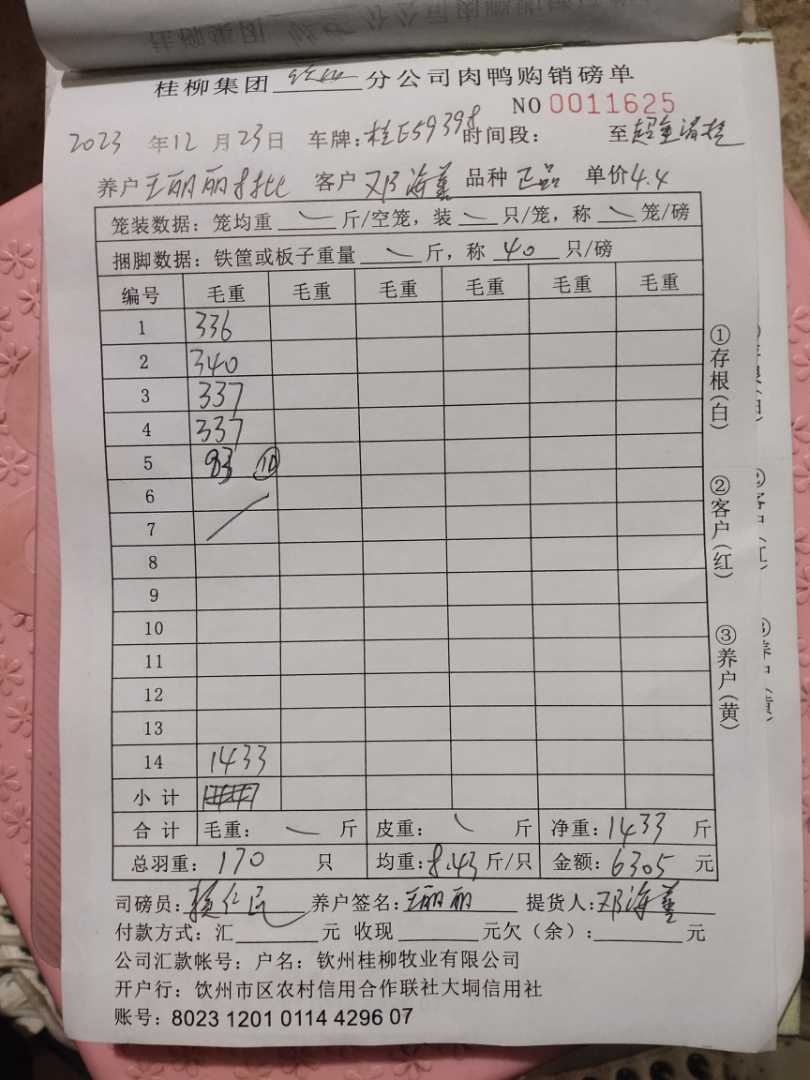 桂柳集团 钦州 分公司肉鸭购销磅单
NO 0011625
2023 年 12 月 23 日 车牌:桂E59398 时间段: 至
养户 王丽丽 批 客户 邓海 品种 正品 单价 4.4
笼装数据: 笼均重 斤/空笼, 装 只/笼, 称 笼/磅
捆脚数据: 铁筐或板子重量 斤, 称 40 只/磅
编号 毛重 毛重 毛重 毛重 毛重 毛重
1 336
2 340
3 337
4 337
5 83 ⑩
6
7
8
9
10
11
12
13
14 1433
小 计
合 计 毛重: 斤 皮重: 斤 净重: 1433 斤
总羽重: 170 只 均重: 8.43 斤/只 金额: 6305 元
司磅员: 仁民 养户签名: 王丽丽 提货人: 邓海
付款方式: 汇 元 收现 元欠(余): 元
公司汇款帐号: 户名: 钦州桂柳牧业有限公司
开户行: 饮州市区农村信用合作联社大垌信用社
账号: 8023 1201 0114 4296 07
①存根(白)
②客户(红)
③养户(黄)